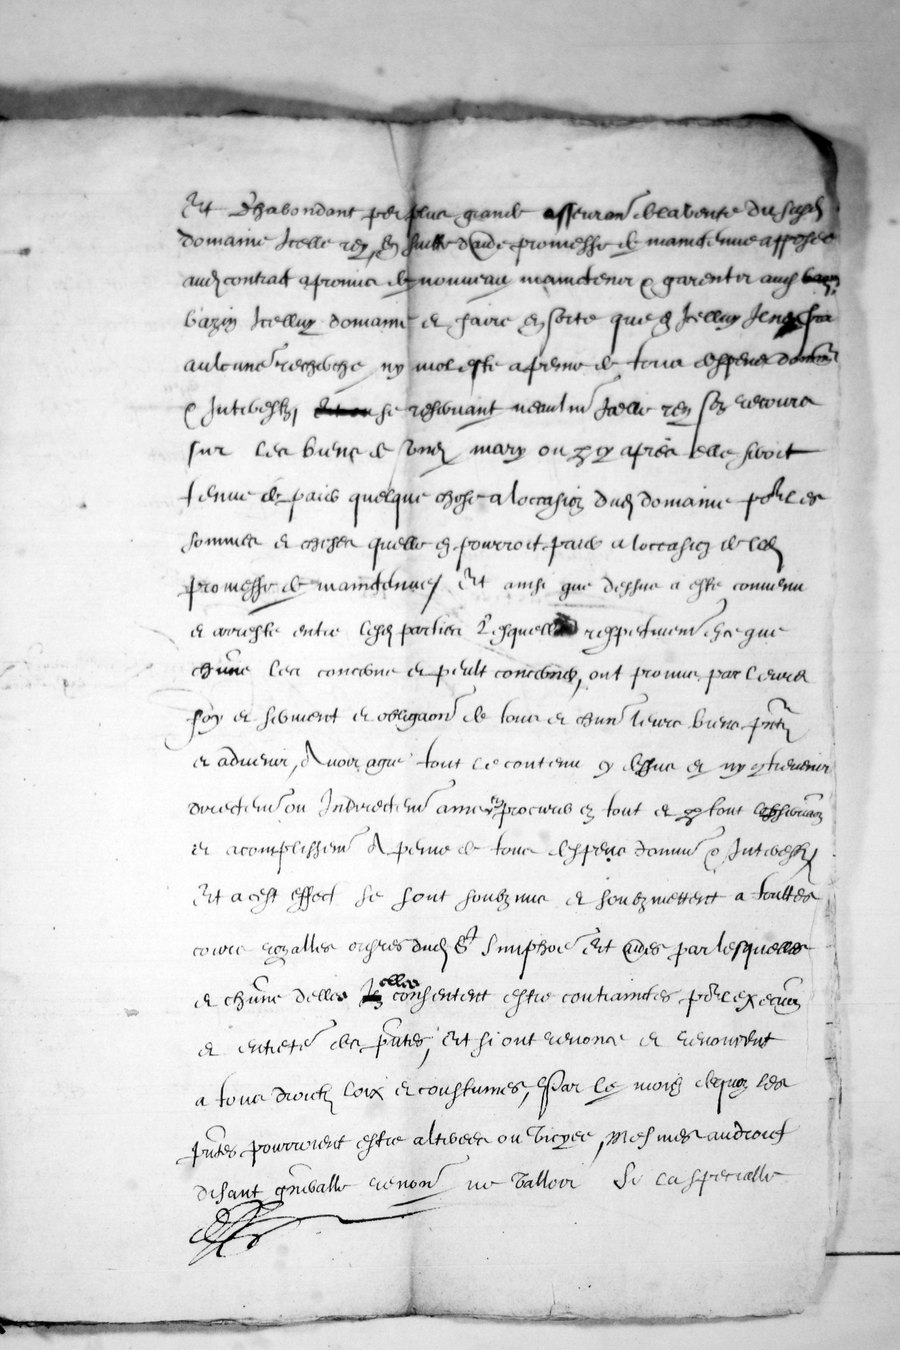 Et d'habondant por plus grande asseuran de la vente dususd
domaine Icelle rey, En suitte d promesse de maintenue apposee
aud contrat a promis de nouveau maintenir & garentir aud
bazin Icelluy domaine et faire En sorte que En Icelluy Il
aulcune recherche ny moleste a peine de tous despens
& Interestz, se reservant neaulm Icelle rey son recours
sur les biens de sond mary ou cy apres elle seroit
tenue de paier quelque chose a loccasion dud domaine pour les
sommes et choses quelle En pourroit paier a loccasion de lad
promesse de maintenue / Et ainsi que dessus a esté convenu
et arresté entre lesd parties Lesquelles respectivem En ce que
chune les concerne et peult concerner, ont promis par leurs
foy et serment et obligaon de tous et chun leurs biens pntz
et advenir, Avoir agre tout le contenu cy dessus et ny contrevenir
directem ou Indirectem ains procurer en tout et par tout
et acomplissem A peine de tous despens domm & Interestz
Et a cest effect se sont soubzmis et soubzmettent a touttes
cours royalles dud St Simphor Et parlesquelles
et chune delles elles consentent estre contraintes pour lexecuon
et entretem des pntes, Et si ont renoncé et renoncent
a tous droictz loix et coustumes, Par le moien desquoy les
pntes pourroient estre alterees ou viciees, Mesmes au droict
disant gnralle renon ne valloir Si la specialle